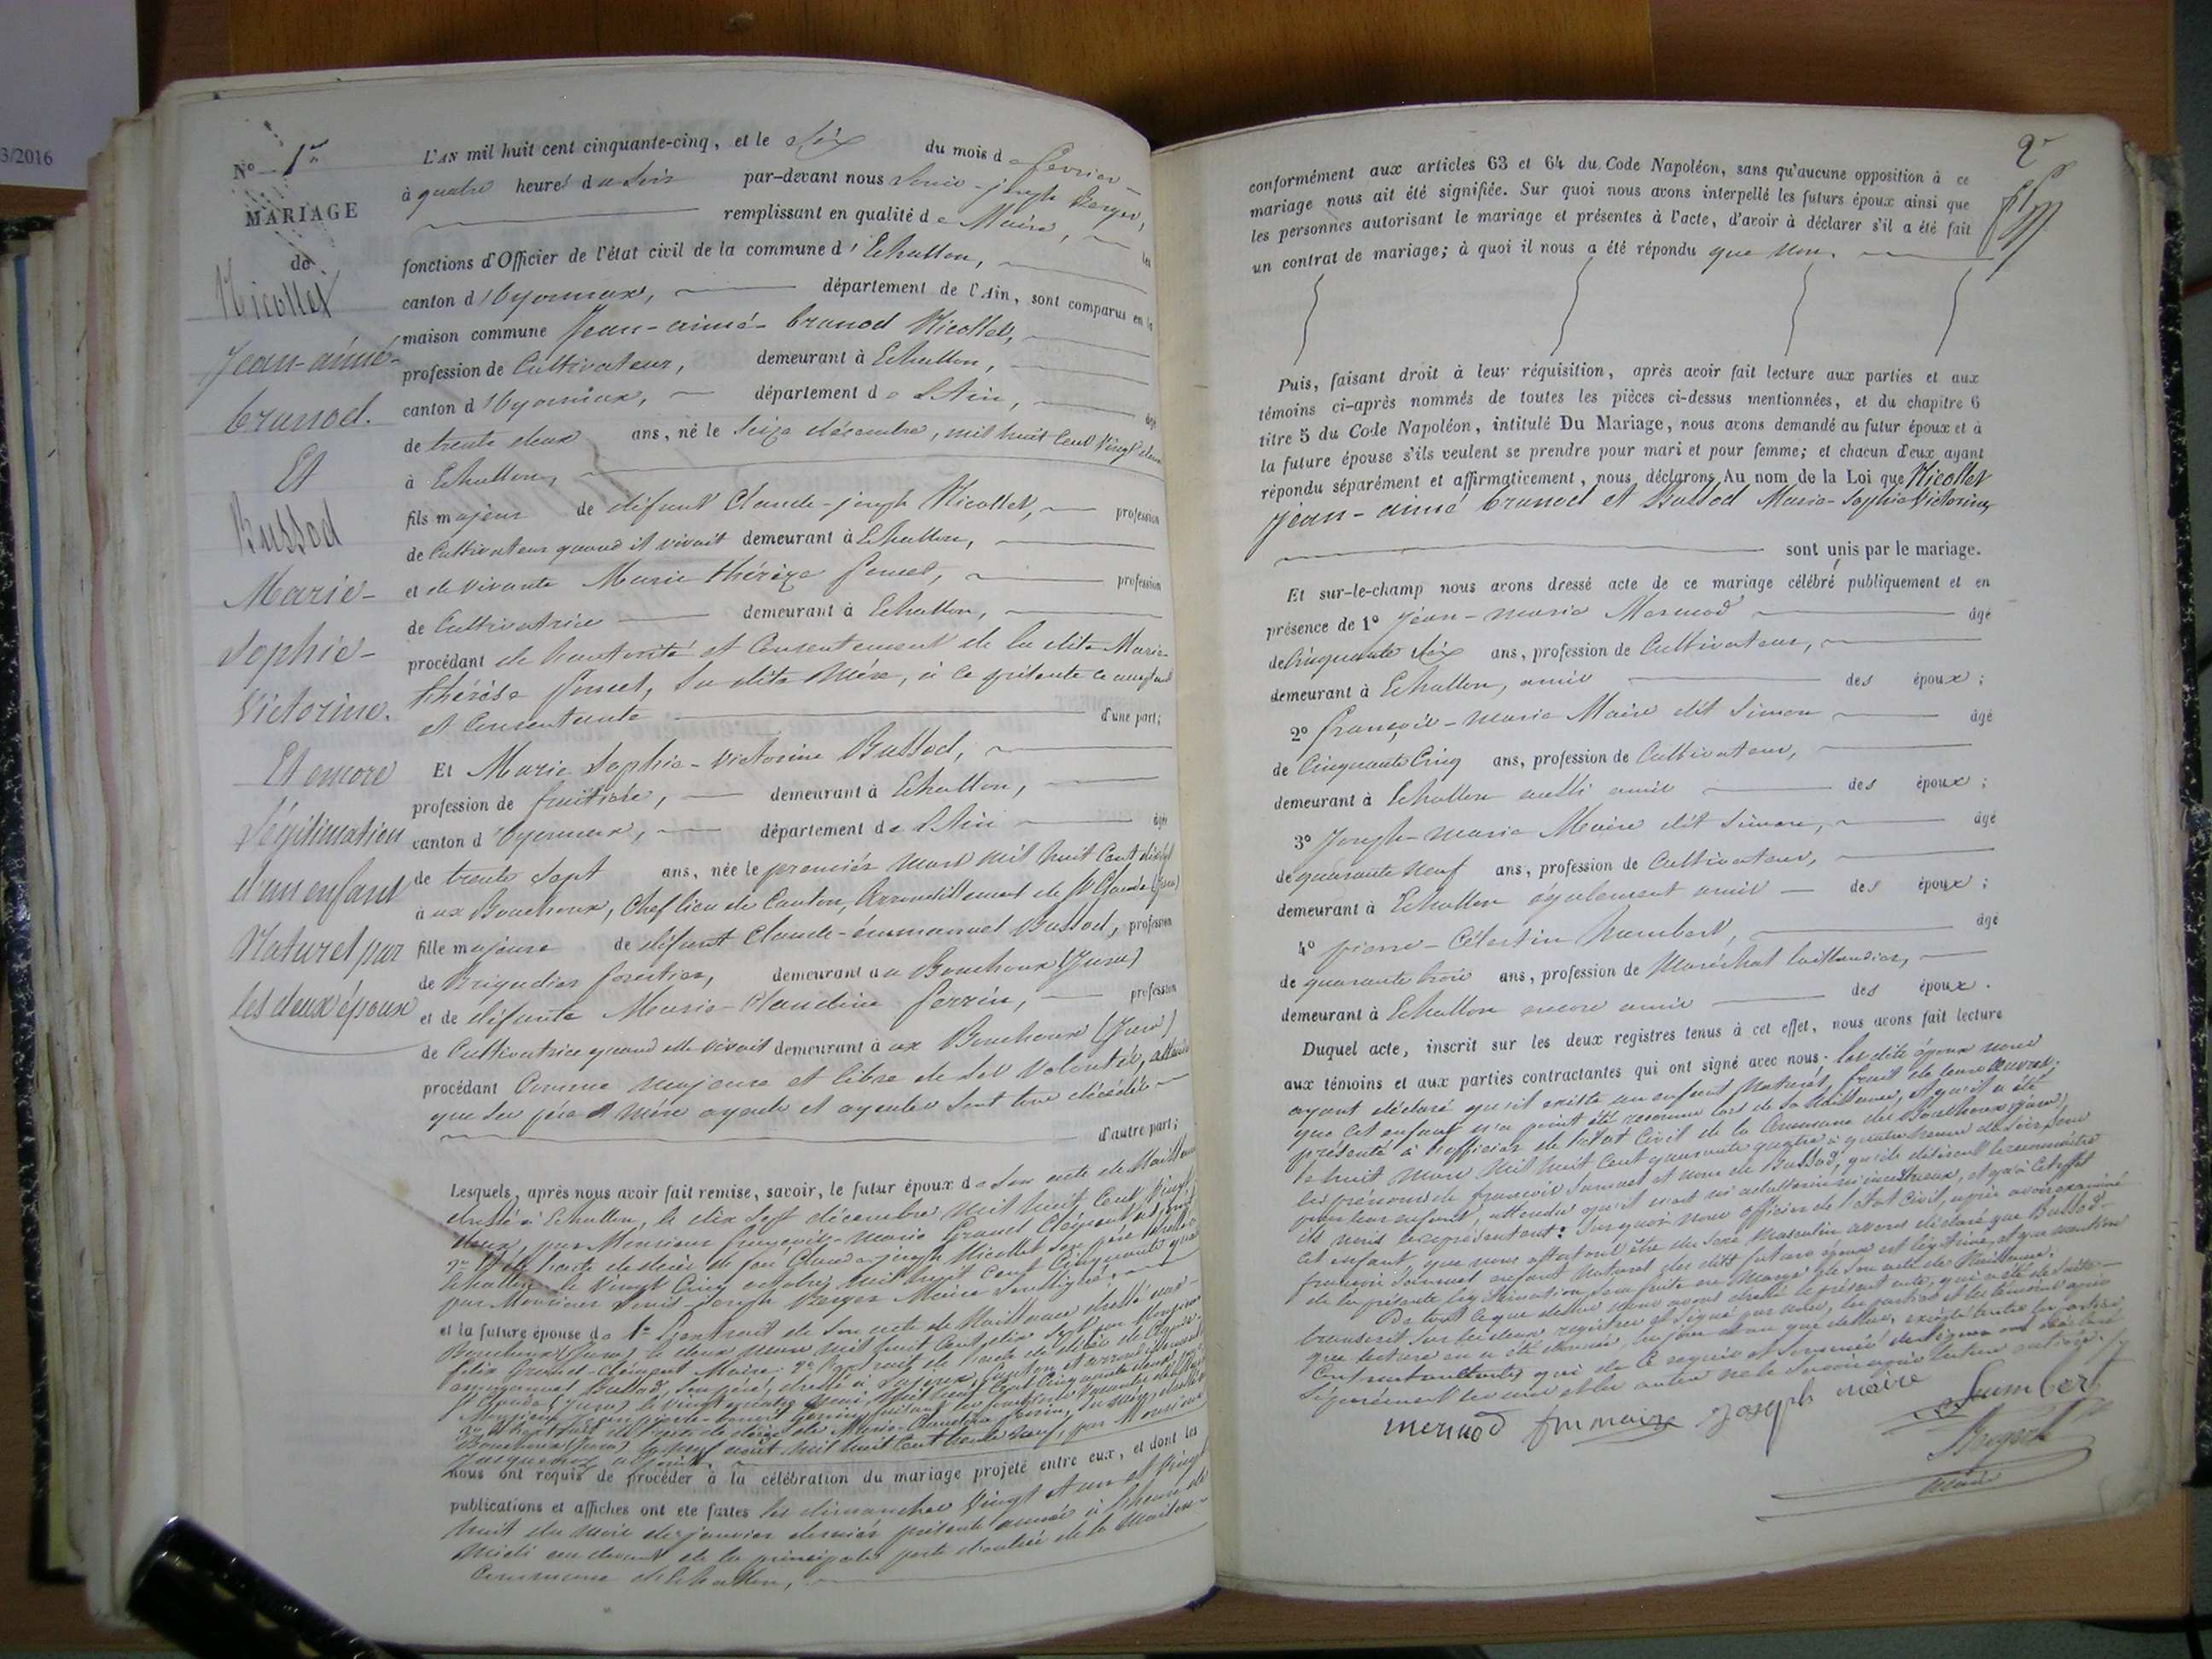 3/2016
N° 1er
MARIAGE
de
Nicollet
Jean-aimé-
brunod.
Et
Bussod
Marie-
Sophie-
Victorine.
Et encore
Légitimation
d'un enfant
Naturel par
les deux époux
L'AN mil huit cent cinquante-cinq, et le Six du mois de fevrier
à quatre heures du Soir par-devant nous Louis-joseph Berger,
remplissant en qualité de Maire, les
fonctions d'Officier de l'état civil de la commune d'Echallon,
canton d'Oyonnax, département de l'Ain, sont comparus en la
maison commune Jean-aimé-brunod Nicollet,
profession de Cultivateur, demeurant à Echallon,
canton d'Oyonnax, département de l'Ain, âgé
de trente deux ans, né le Seize décembre, mil huit Cent Vingt deux
à Echallon,
fils majeur de défunt Claude-joseph Nicollet, profession
de Cultivateur quand il vivait demeurant à Echallon,
et de vivante Marie thérèze poncet, profession
de Cultivatrice demeurant à Echallon,
procédant de l'autorité et Consentement de la dite Marie-
thérèse poncet, Sa dite Mère, à ce présente ce acceptant
et Consentante d'une part;
Et Marie Sophie-Victorine Bussod,
profession de fruitière, demeurant à Echallon,
canton d'Oyonnax, département de l'Ain âgée
de trente Sept ans, née le premier mars mil huit Cent dix sept
à aux Bouchoux, Chef lieu de Canton, Arrondissement de St Claude (Jura)
fille majeure de défunt Claude-émmanuel Bussod, profession
de Brigadier forestier, demeurant au Bouchoux (Jura)
et de défunte Marie-Claudine perrin, profession
de Cultivatrice quand elle vivait demeurant à aux Bouchoux (Jura)
procédant Comme majeure et libre de Ses Volontés, attendu
que Ses père et mère ayeuls et ayeules Sont tous décédés
d'autre part;
Lesquels, après nous avoir fait remise, savoir, le futur époux de Son acte de Naissance
dressé à Echallon, le dix Sept décembre mil huit Cent Vingt
deux, par Monsieur françois-marie Grand Clément
2° Et de l'acte de décès de feu Claude-joseph Nicollet Son père dressé à
Echallon le Vingt Cinq octobre mil huit cent Cinquante quatre
par Monsieur Louis-joseph Berger Maire Soussigné.
et la future épouse de 1° L'extrait de Son acte de Naissance dressé aux
Bouchoux (Jura) le deux mars mil huit Cent dix Sept par Monsieur
félix Grand-Clément Maire. 2° L'extrait de l'acte de décès de Claude-
emmanuel Bussod, Son père, dressé à Canton et arrondissement de
St Claude (Jura) le Vingt quatre mil huit Cent Cinquante
Monsieur
3° Et l'extrait de l'acte de décès de Marie-Claudine perrin, Sa mère, dressé aux
Bouchoux (Jura) le neuf août mil huit Cent trente neuf, par Monsieur
nous ont requis de procéder à la célébration du mariage projeté entre eux, et dont les
publications et affiches ont été faites les dimanches Vingt et un et Vingt
huit du mois de janvier dernier présente année à l'heure de
Midi au devant de la principale porte d'entrée de la Maison
Commune d'Echallon,
2e
conformément aux articles 63 et 64 du Code Napoléon, sans qu'aucune opposition à ce
mariage nous ait été signifiée. Sur quoi nous avons interpellé les futurs époux ainsi que
les personnes autorisant le mariage et présentes à l'acte, d'avoir à déclarer s'il a été fait
un contrat de mariage; à quoi il nous a été répondu que Non.
Puis, faisant droit à leur réquisition, après avoir fait lecture aux parties et aux
témoins ci-après nommés de toutes les pièces ci-dessus mentionnées, et du chapitre 6
titre 5 du Code Napoléon, intitulé Du Mariage, nous avons demandé au futur époux et à
la future épouse s'ils veulent se prendre pour mari et pour femme; et chacun d'eux ayant
répondu séparément et affirmativement, nous déclarons Au nom de la Loi que Nicollet
Jean-aimé brunod et Bussod Marie-Sophie Victorine,
sont unis par le mariage.
Et sur-le-champ nous avons dressé acte de ce mariage célébré publiquement et en
présence de 1° Jean-marie Mermod âgé
de Cinquante Six ans, profession de Cultivateur,
demeurant à Echallon, amis des époux;
2° françois-marie Maire dit Simon âgé
de Cinquante Cinq ans, profession de Cultivateur,
demeurant à Echallon aussi amis des époux;
3° Joseph-marie Maire dit Simon, âgé
de quarante Neuf ans, profession de Cultivateur,
demeurant à Echallon également amis des époux;
4° pierre-Célestin humbert, âgé
de quarante trois ans, profession de Maréchal taillandier,
demeurant à Echallon encore amis des époux.
Duquel acte, inscrit sur les deux registres tenus à cet effet, nous avons fait lecture
aux témoins et aux parties contractantes qui ont signé avec nous; les dits époux nous
ayant déclaré qu'il existe un enfant Naturel, fruit de leurs œuvres,
que cet enfant n'a point été reconnu lors de Sa Naissance, et qu'il a été
présenté à l'officier de l'état Civil de la Commune des Bouchoux (Jura),
le huit Mars Mil huit Cent quarante quatre à quatre heures du Soir, Sous
les prénoms de françois Samuel et nom de Bussod, qu'ils désirent le reconnaître
pour leur enfant, attendu qu'il n'est ni adultérin ni incestueux, et qu'à Cet effet
ils nous le représentent: Sur quoi nous officier de l'état Civil, après avoir examiné
cet enfant, que nous attestons être du Sexe Masculin avons déclaré que Bussod-
françois Samuel enfant Naturel des dits futurs époux est légitimé, et que mention
de la présente légitimation Sera faite en marge de Son acte de Naissance.
De tout ce que dessus nous avons dressé le présent acte, qui a été de Suite
transcrit Sur les deux registres et Signé par nous, les parties et les témoins après
que lecture en a été donnée, les jour et an que dessus, excepté toutes les parties
Contractantes, qui de Ce requis et Sommés de Signer ont déclaré
Séparément les uns et les autres ne le Savoir après lecture
mermod fm maire Joseph maire Humbert
Berger
maire